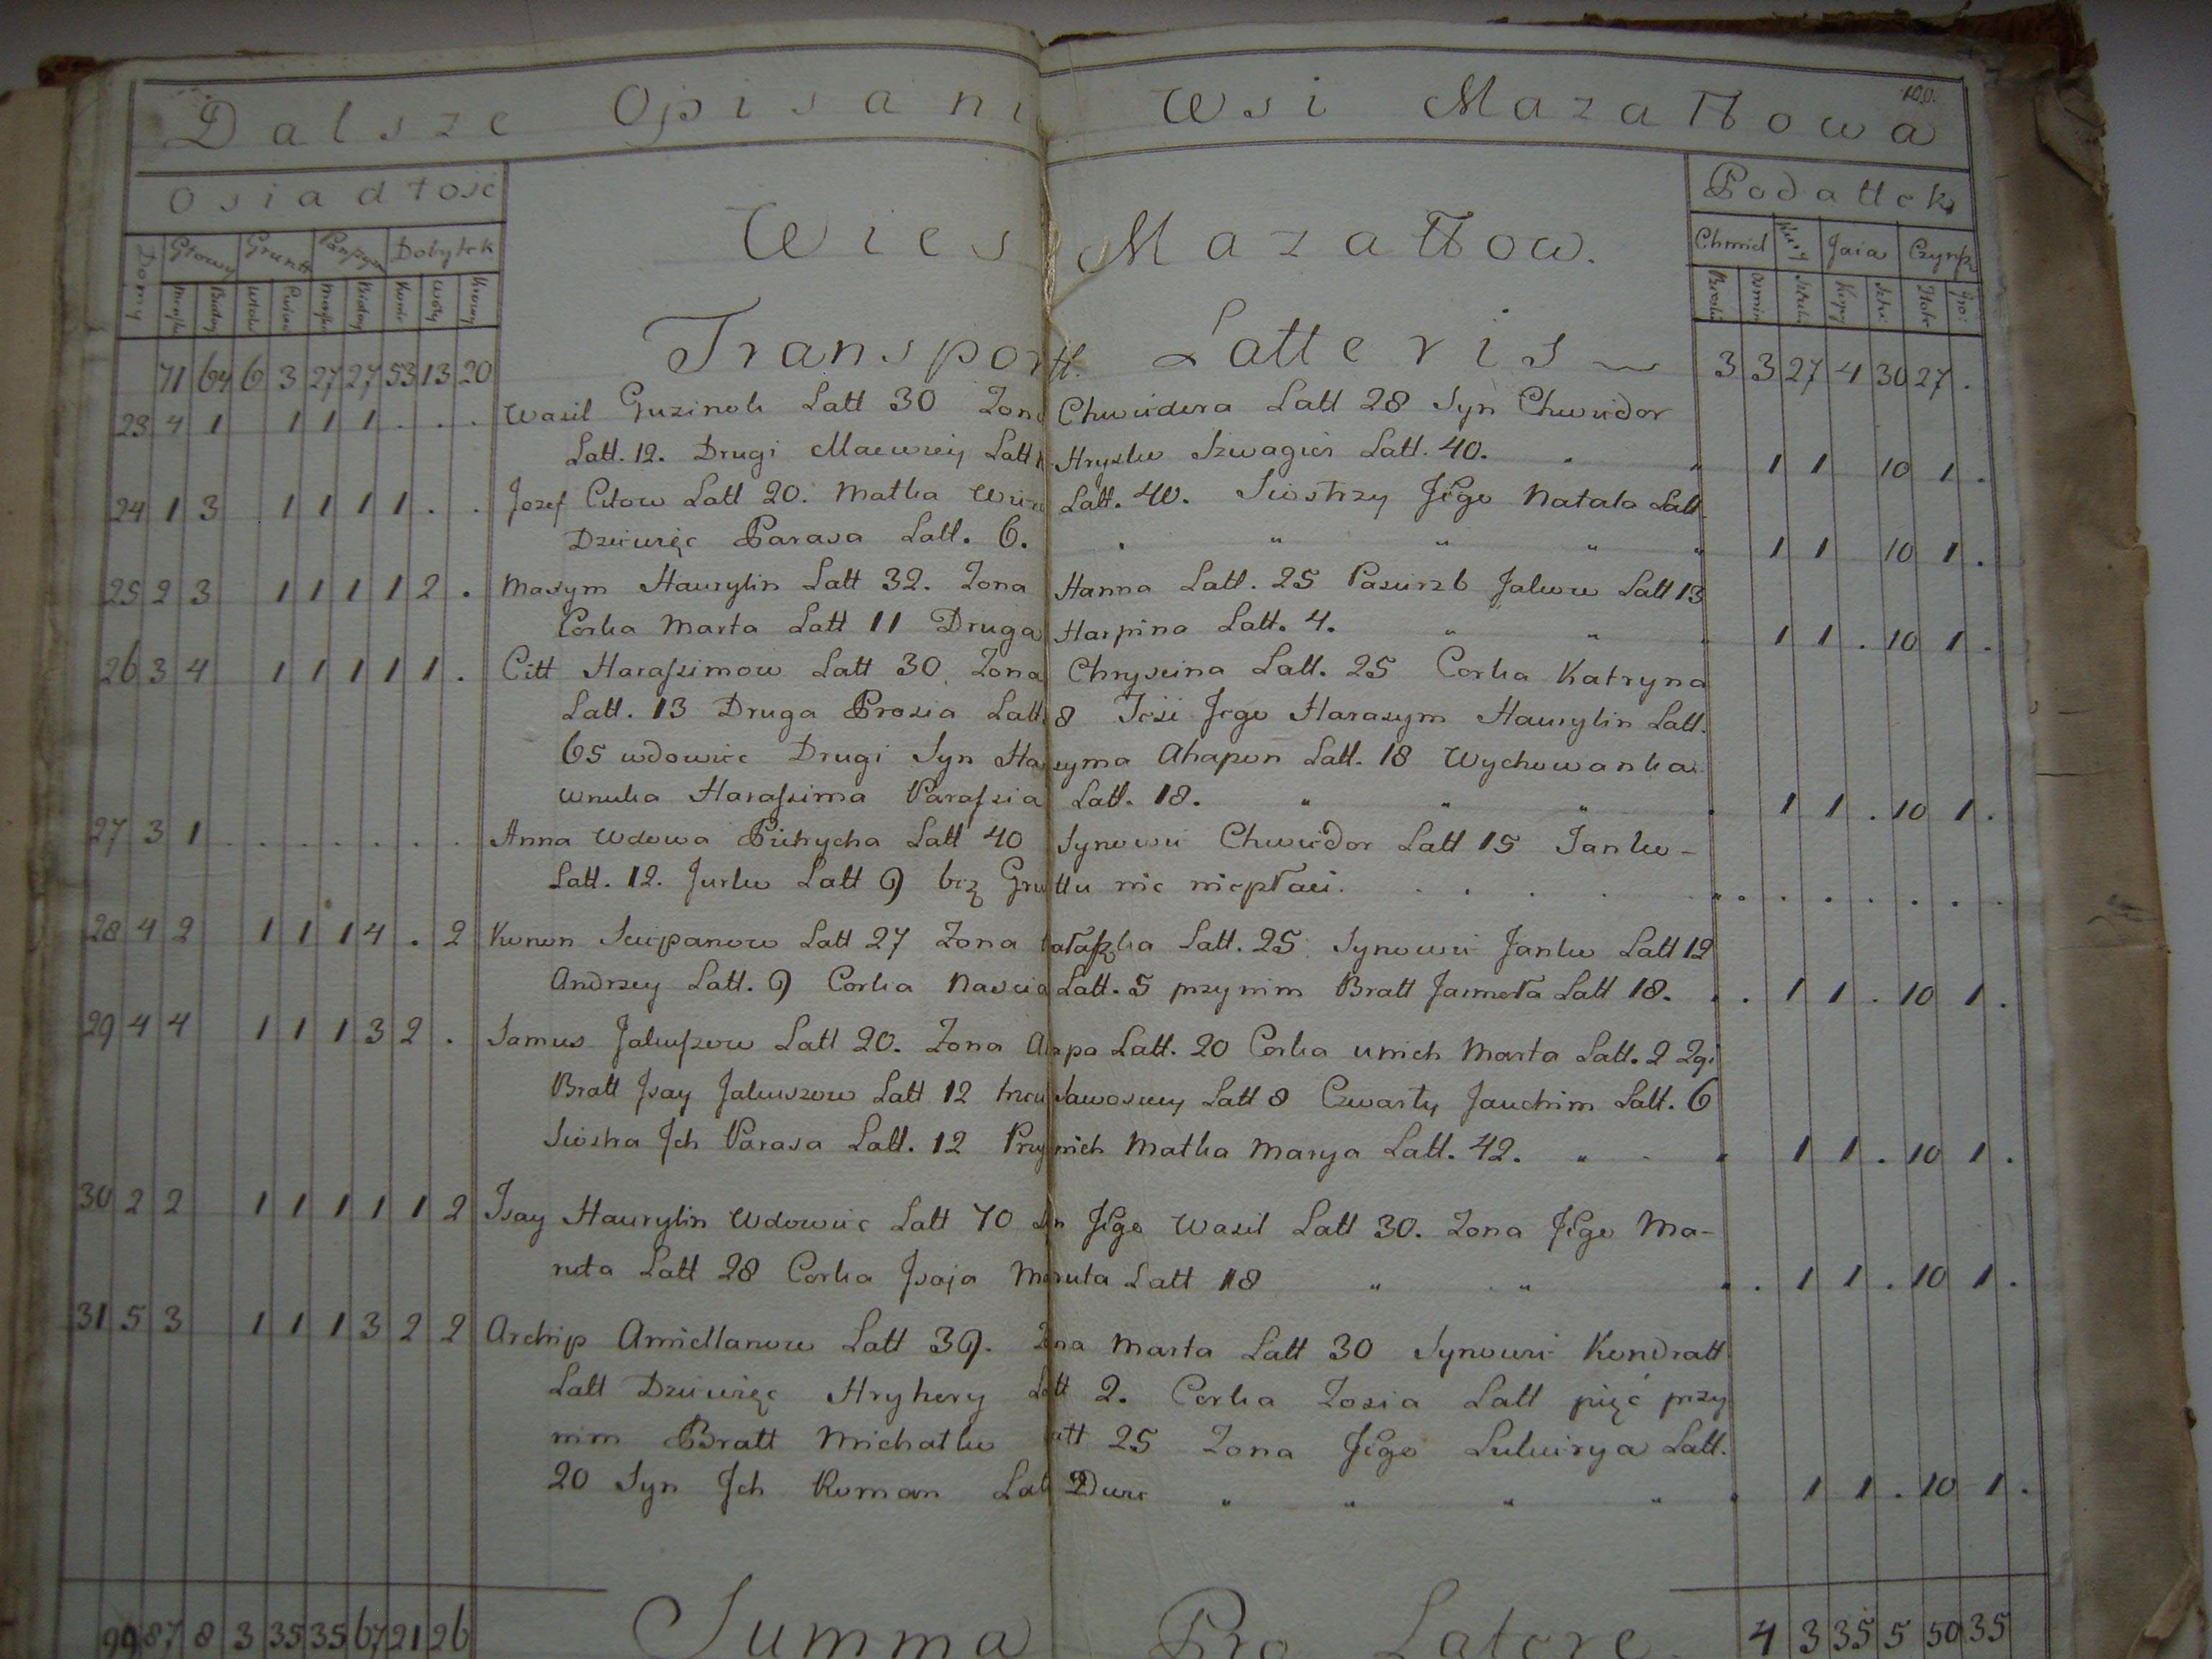 100.
Dalsze Opisani Wsi Mazałłowa
Osiadłość
Podattek
Domy Głowy Grunt Dobytek
Chmiel Kury Jaia Czynsz
Wies Mazałłow.
71 64 6 3 27 27 53 13 20 Transportt. Latteris 3 3 27 4 30 27 .
23 4 1 1 1 1 . . . Wasil Guzinok Latt 30 Zona Chwiedora Latt 28 Syn Chwiedor
Latt. 12. Drugi Maewiey Latt Hryszko Szwagier Latt. 40. 1 1 10 1 .
24 1 3 1 1 1 1 . . Jozef Citow Latt 20. Matka Latt. 40. Siostrzy Jego Natala Latt.
Dziewięc Parasa Latt. 6. 1 1 10 1 .
25 2 3 1 1 1 1 2 . Maxym Haurylin Latt 32. Zona Hanna Latt. 25 Pasierzb Jakow Latt 13
Corka Marta Latt 11 Druga Harpina Latt. 4. 1 1 . 10 1 .
26 3 4 1 1 1 1 1 . Citt Harassimow Latt 30. Zona Chryscina Latt. 25 Corka Katryna
Latt. 13 Druga Prosia Latt. 8 Jego Harasym Haurylin Latt.
65 wdowiec Drugi Syn Harasyma Ahapon Latt. 18 Wychowanka
wnuka Harassima Parassia Latt. 18. 1 1 . 10 1 .
27 3 1 . . . . . . . Anna Wdowa Pichycha Latt 40 Synowie Chwiedor Latt 15 Janko-
Latt. 12. Jurko Latt 9 bez Gruttu nic niepłaci. . . . . . . .
28 4 2 1 1 1 4 . 2 Konon Sciepanow Latt 27 Zona Latt. 25. Synowie Janko Latt 12
Andrzey Latt. 9 Corka Nascia Latt. 5 przynim Bratt Jarmoła Latt 18. . . 1 1 . 10 1 .
29 4 4 1 1 1 3 2 . Samus Jakuszow Latt 20. Zona Latt. 20 Corka unich Marta Latt. 2 2gi
Bratt Jsay Jakuszow Latt 12 trzeci Sawosciey Latt 8 Czwarty Jauchim Latt. 6
Siostra Jch Parasa Latt. 12 Przynich Matka Marya Latt. 42. 1 1 . 10 1 .
30 2 2 1 1 1 1 1 2 Jsay Haurylin Wdowiec Latt 70 Syn Jego Wasil Latt 30. Zona Jego Ma-
ruta Latt 28 Corka Jsaja Maruta Latt 18 . . 1 1 . 10 1 .
31 5 3 1 1 1 3 2 2 Archip Amiellanow Latt 39. Zona Marta Latt 30 Synowie Kondratt
Latt Dziewięc Hryhory Latt 2. Corka Zosia Latt pięć przy
nim Bratt Michałko Latt 25 Zona Jego Lukierya Latt.
20 Syn Jch Roman Latt Dwa 1 1 . 10 1 .
99 87 8 3 35 35 67 21 26 Summa Pro Latere 4 3 35 5 50 35